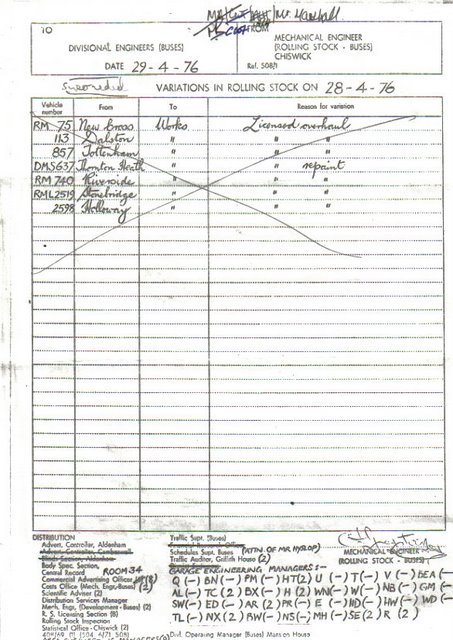 Mr Marshall
TO
FROM
DIVISIONAL ENGINEERS (BUSES)
MECHANICAL ENGINEER
(ROLLING STOCK - BUSES)
CHISWICK
DATE 29-4-76
Ref. 508/1
VARIATIONS IN ROLLING STOCK ON 28-4-76
Vehicle number From To Reason for variation
RM 75 New Cross Works Licensed overhaul
113 Dalston " " "
857 Tottenham " " "
DMS637 Thornton Heath " " repaint
RM 740 Riverside " " "
RML2519 Stonebridge " " "
2598 Holloway " " "
DISTRIBUTION
Advert. Controller, Aldenham
Advert. Controller, Camberwell
Body Spec. Section,
Central Record ROOM 34
Commercial Advertising Officer
Costs Office (Mech. Engr-Buses) (2)
Scientific Adviser (2)
Distribution Services Manager
Mech. Engr, (Development - Buses) (2)
R. S. Licensing Section (8)
Rolling Stock Inspection
Statistical Office - Chiswick (2)
Traffic Supt. (Buses)
Schedules Supt. Buses (ATTN. OF MR HYSLOP)
Traffic Auditor, Griffith House (2)
GARAGE ENGINEERING MANAGERS:-
Q (-) BN (-) PM (-) HT (2) U (-) T (-) V (-) BEA (-
AL (-) TC (2) BX (-) H (2) WN (-) W (-) NB (-) GM (-
SW (-) ED (-) AR (2) PR (-) E (-) HD (-) HW (-) WD (-
TL (-) NX (2) BW (-) NS (-) MH (-) SE (2) R (2)
MECHANICAL ENGINEER
(ROLLING STOCK - BUSES)
Divl. Operating Manager (Buses) Mansion House